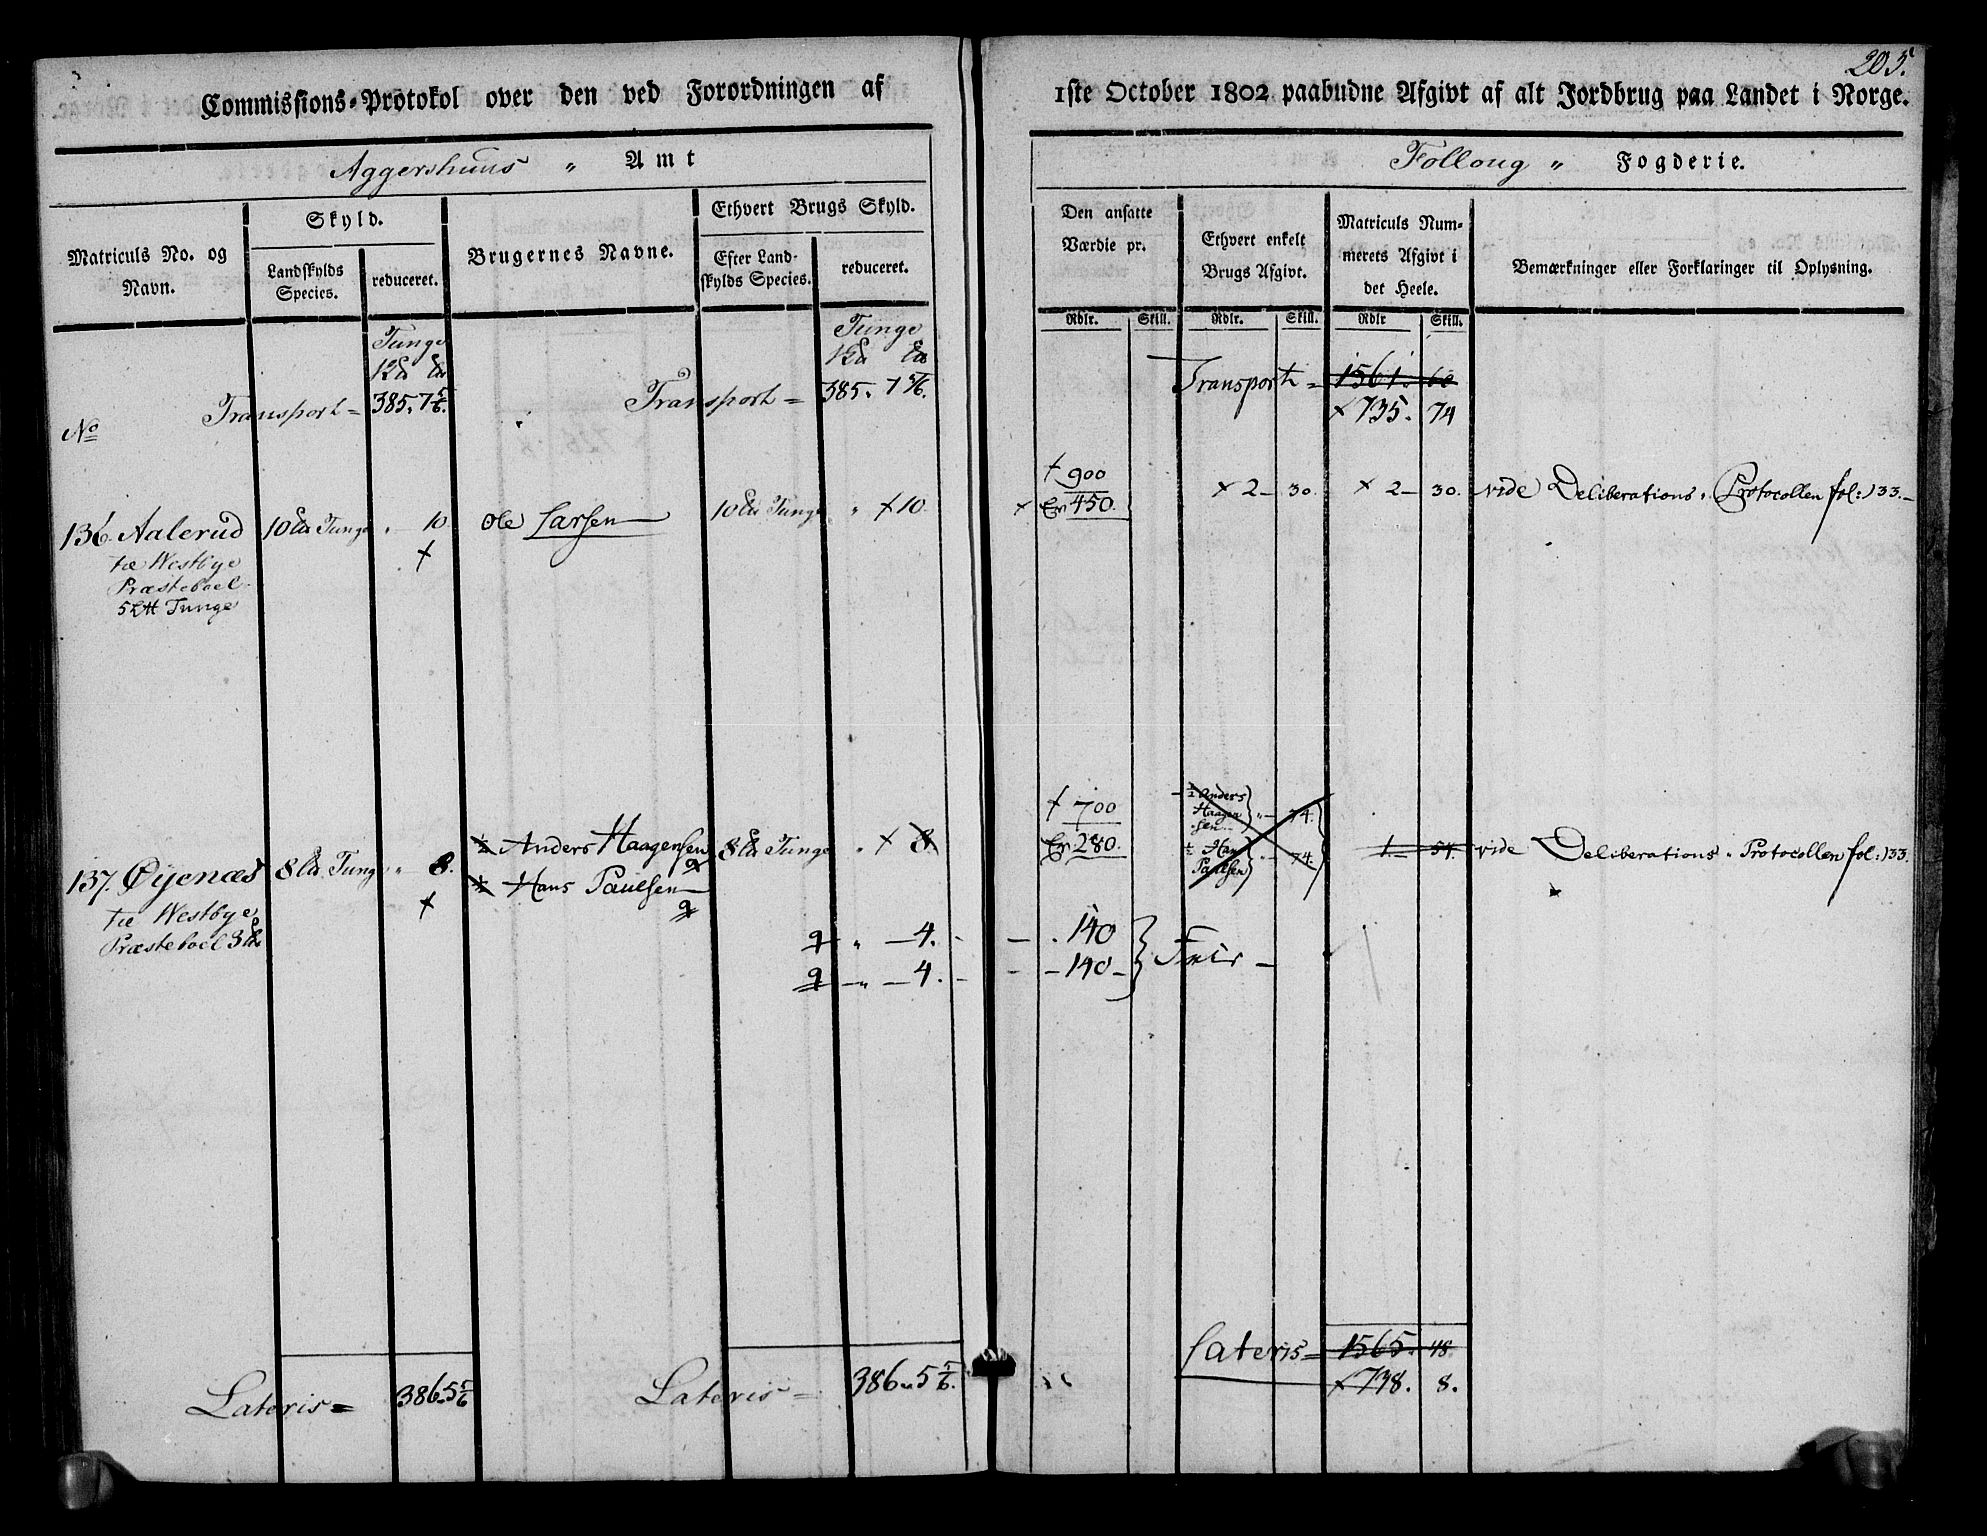 205.
Commissions-Protokol over den ved Forordningen af 1ste October 1802 paabudne Afgivt af alt Jordbrug paa Landet i Norge.
Aggershuus „ Amt
Follong „ Fogderie.
Matriculs No. og Navn.
Skyld.
Landskylds Species.
reduceret.
Brugernes Navne.
Ethvert Brugs Skyld.
Efter Landskylds Species.
reduceret.
Den ansatte Værdie pr.
Ethvert enkelt Brugs Afgivt.
Matriculs Nummerets Afgivt i det Heele.
Bemærkninger eller Forklaringer til Oplysning.
Rdlr. Skill. Rdlr. Skill. Rdlr Skill.
Tunge
Tunge
No
Transport = 385. 7 5/6.
Transport = 385. 7 5/6.
Transport = 1561. 60
x 735. 74
136. Aalerud 10 Tunge „ 10. Ole Larsen 10 Tunge „ x 10.
til Westbye
Præsteboel
5 Tunge
x
x 900
x Er 450. x 2 - 30. x 2 - 30. vide Deliberations Protocollen fol: 133.
137. Øijenæs 8 Tunge „ 8. ½ Anders Haagensen 8 Tunge „ x 8.
½ Hans Paulsen
til Westbye
Præsteboel 3
x
„ 4.
„ 4.
x 700
Er 280.
½ Anders
Haagen
sen „ 74.
½ Hans
Paulsen „ 74.
1 - 54. vide Deliberations Protocollen fol: 133.
140
140 } Frie
Lateris = 386. 5 5/6
Lateris = 386. 5 5/6.
Lateris = 1565. 48
x 738. 8.